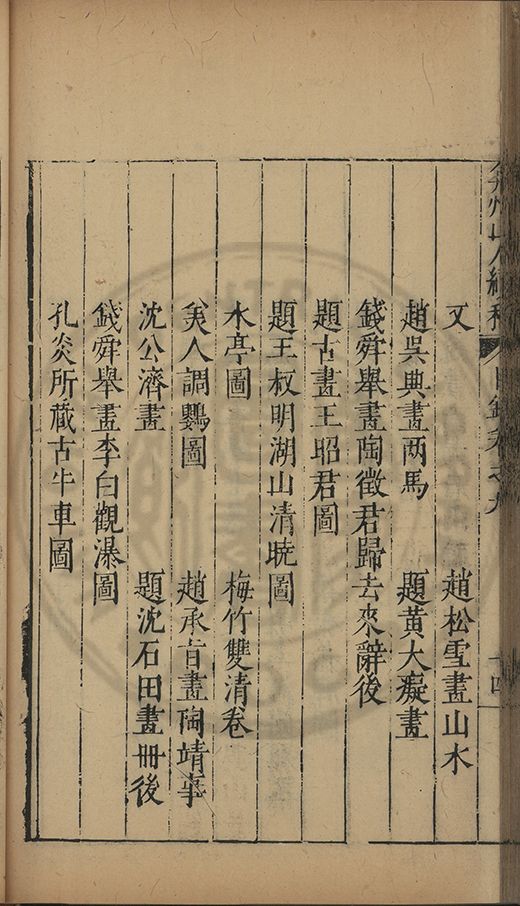 弇州山人續稿 目錄卷之九 十四
又 趙松雪畫山水
趙吳典畫兩馬 題黃大癡畫
錢舜舉畫陶徵君歸去來辭後
題古畫王昭君圖
題王叔明湖山清曉圖
水亭圖 梅竹雙清卷
美人調鸚圖 趙承旨畫陶靖事
沈公濟畫 題沈石田畫冊後
錢舜舉畫李白觀瀑圖
孔炎所藏古牛車圖